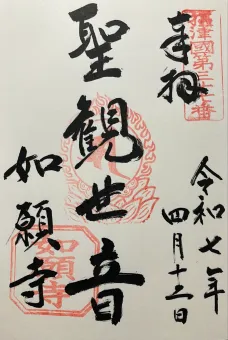 奉拝
摂津國第三十一番
令和七年
四月十三日
聖観世音
如願寺
如願寺